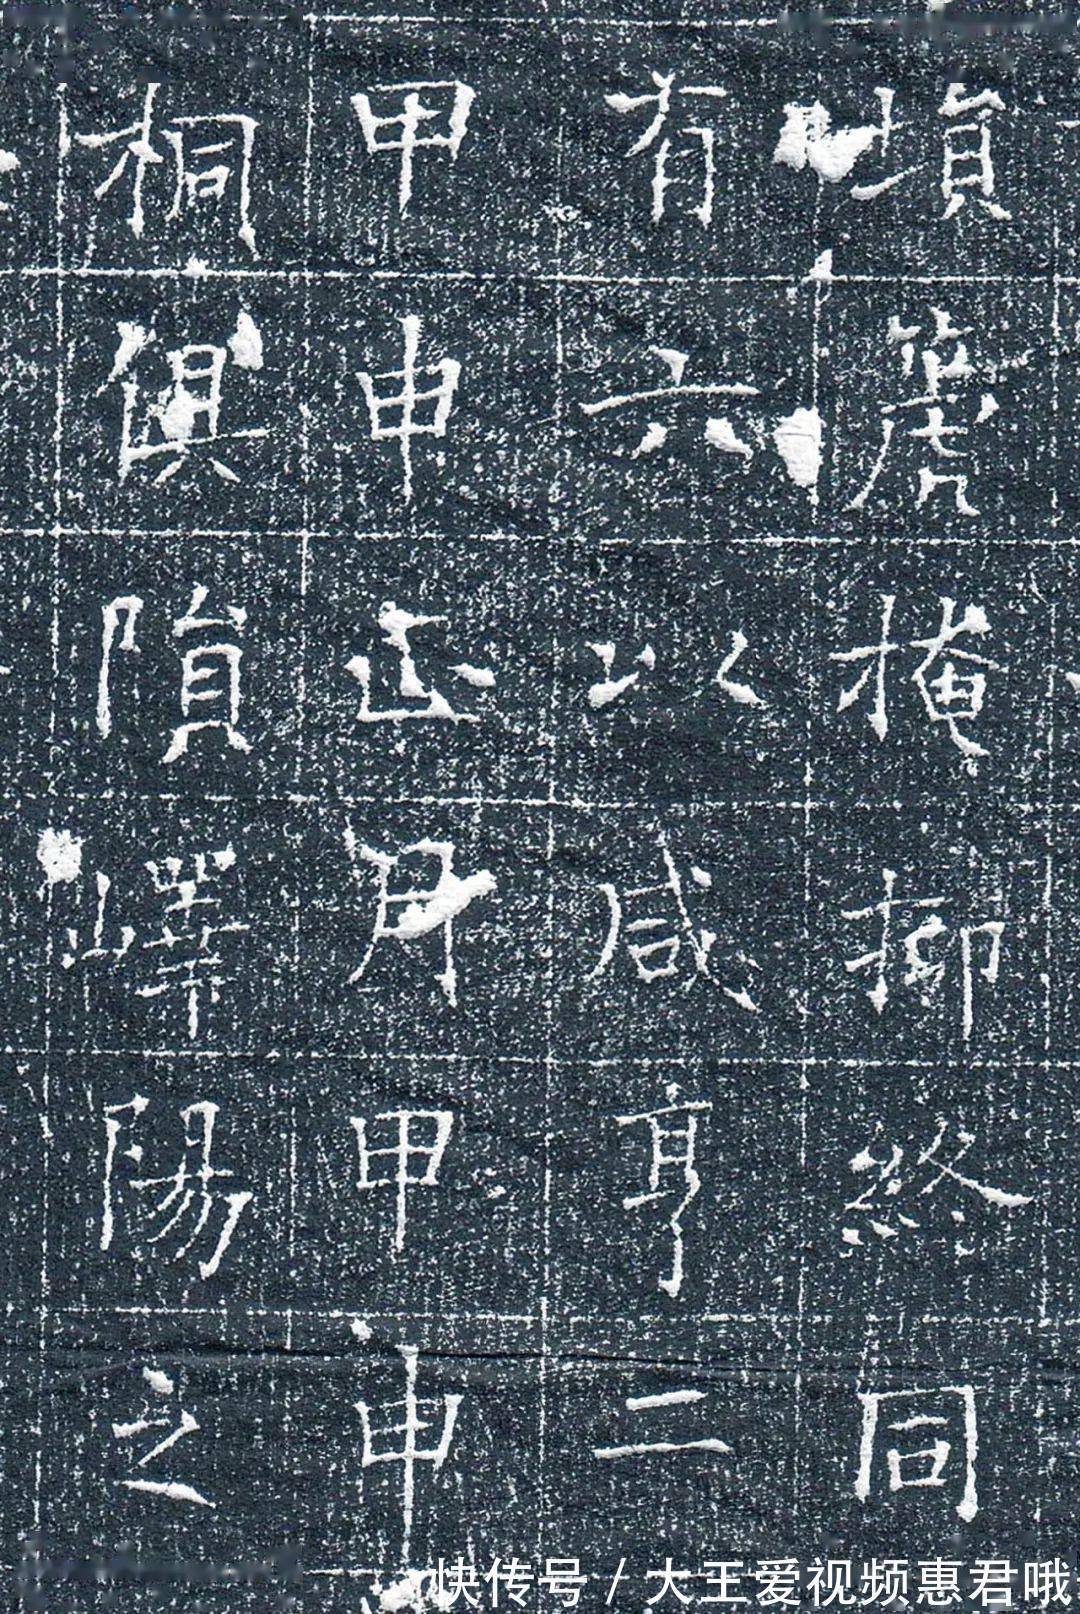 塤篪掩抑終同
有六以咸亨二
甲申正月甲申
桐俱隕嶧陽之
快传号 / 大王爱视频惠君哦